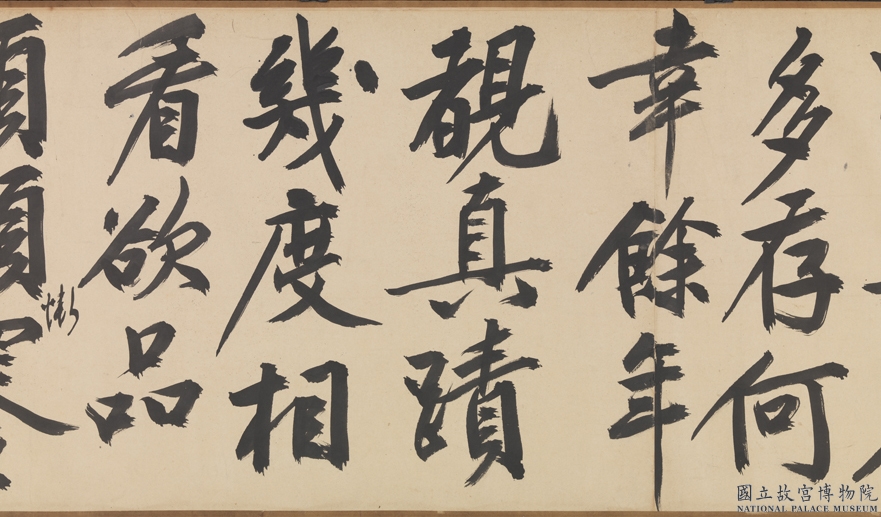 多存何
幸餘年
覩真蹟
幾度相
看欲品
國立故宮博物院
NATIONAL PALACE MUSEUM